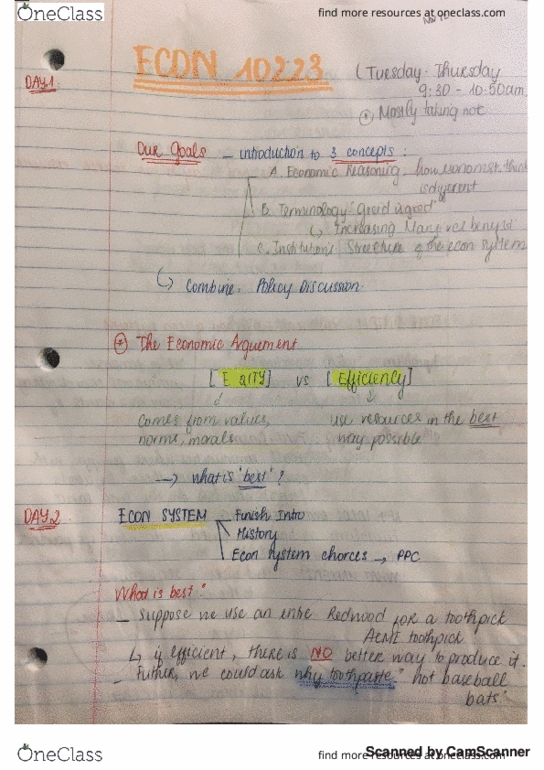 OneClass
find more resources at oneclass.com
ECON 10223
(Tuesday - Thursday
9:30 - 10:50am
DAY 1
Mostly taking not
Our Goals — introduction to 3 concepts:
A. Economic Reasoning how economist think
is different
B. Terminology
↳ Increasing
C. Institutions Structure of the econ system
↳ Combine: Policy Discussion
The Economic Arguement
[ E QITY] vs [Efficiency]
comes from values, use resources in the best
norms, morals way possible
→ what is "best"?
DAY 2
ECON SYSTEM Finish Intro
History
Econ system choices → PPC
What is best"
— Suppose we use an entire Redwood for a toothpick
ACME toothpick
↳ if efficient, there is NO better way to produce it.
— Futher, we could ask why toothpaste" not baseball
bats"
OneClass
find more resources at oneclass.com
Scanned by CamScanner